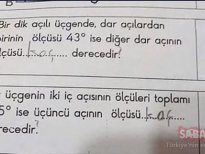 Bir dik açılı üçgende, dar açılardan
birinin ölçüsü 43° ise diğer dar açının
ölçüsü kaç derecedir?
üçgenin iki iç açısının ölçüleri toplamı
5° ise üçüncü açının ölçüsü kaç
recedir?
SABAH